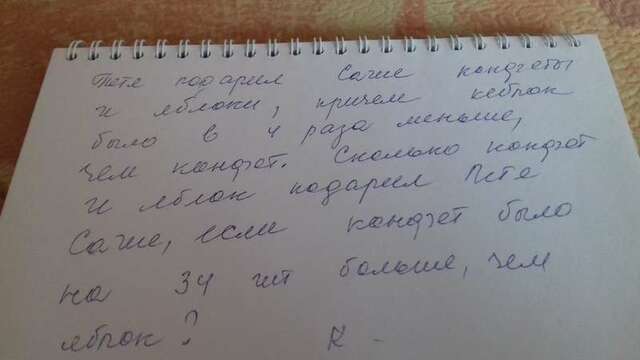 Петя подарил Саше конфеты
и яблоки, причем яблок
было в 4 раза меньше,
чем конфет. Сколько конфет
и яблок подарил Петя
Саше, если конфет было
на 34 шт больше, чем
яблок?